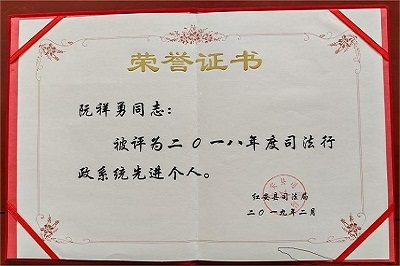 荣誉证书
阮祥勇同志：
被评为二〇一八年度司法行
政系统先进个人。
红安县司法局
二〇一九年二月